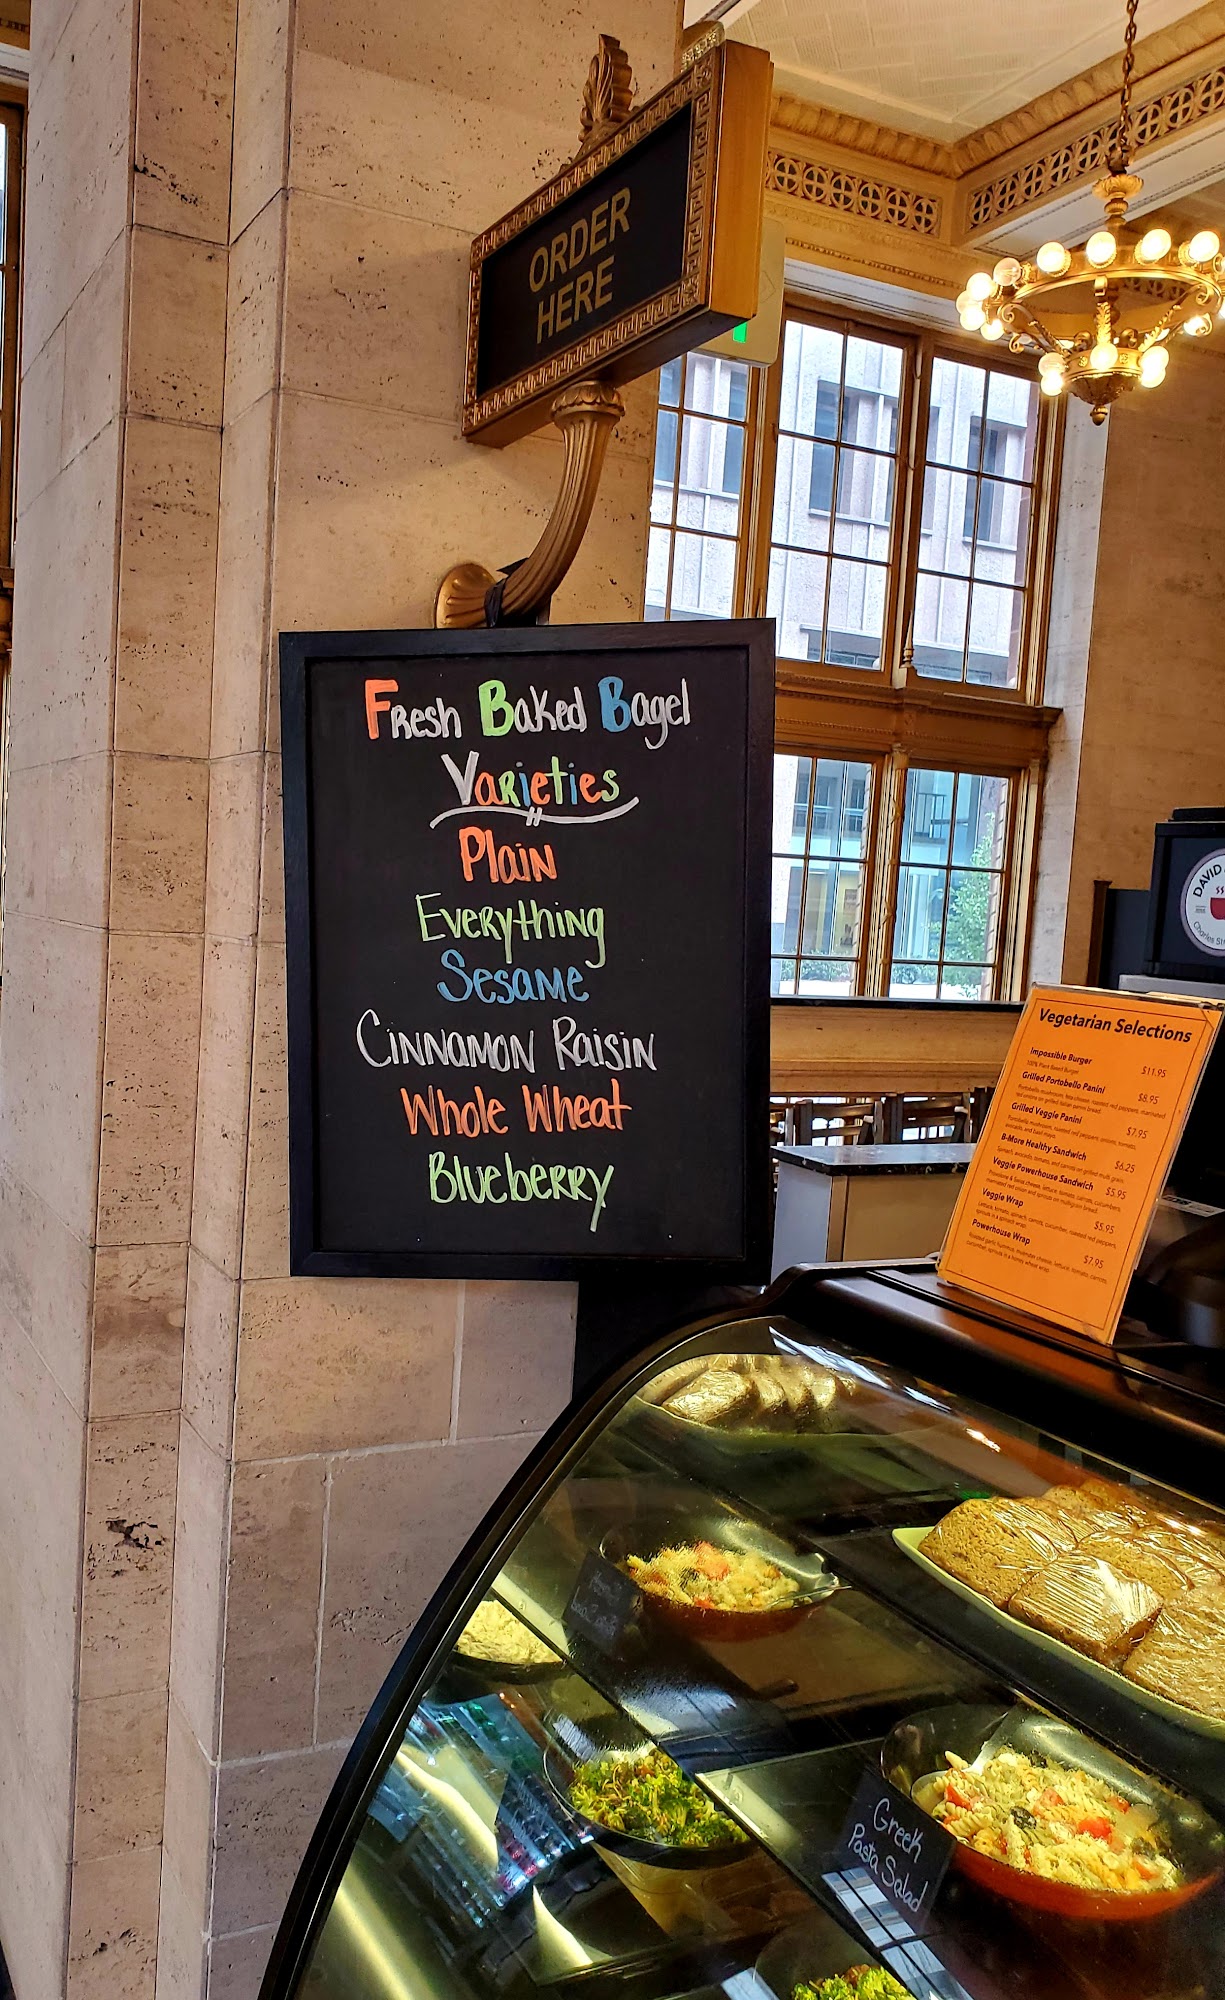 ORDER
HERE
Fresh Baked Bagel
Varieties
Plain
Everything
Sesame
Cinnamon Raisin
Whole Wheat
Blueberry
DAVID
Charles St
Vegetarian Selections
Impossible Burger
100% Plant Based Burger
$11.95
Grilled Portobello Panini
$8.95
Grilled Veggie Panini
$7.95
B-More Healthy Sandwich
$6.25
Veggie Powerhouse Sandwich
$5.95
Veggie Wrap
$5.95
Powerhouse Wrap
$7.95
Greek
Pasta Salad